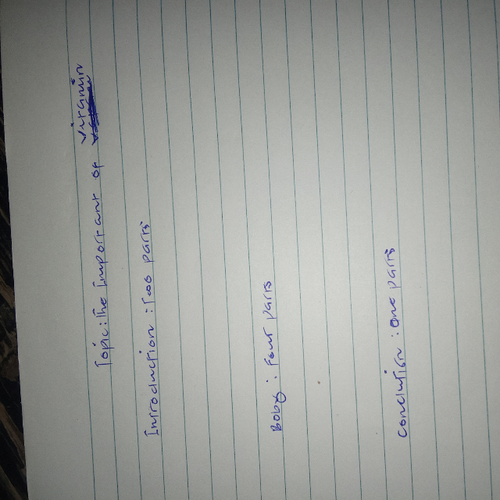 Topic: The Important of Vitamin
Introduction: Two parts
Boby: Four parts
Conclution: One parts